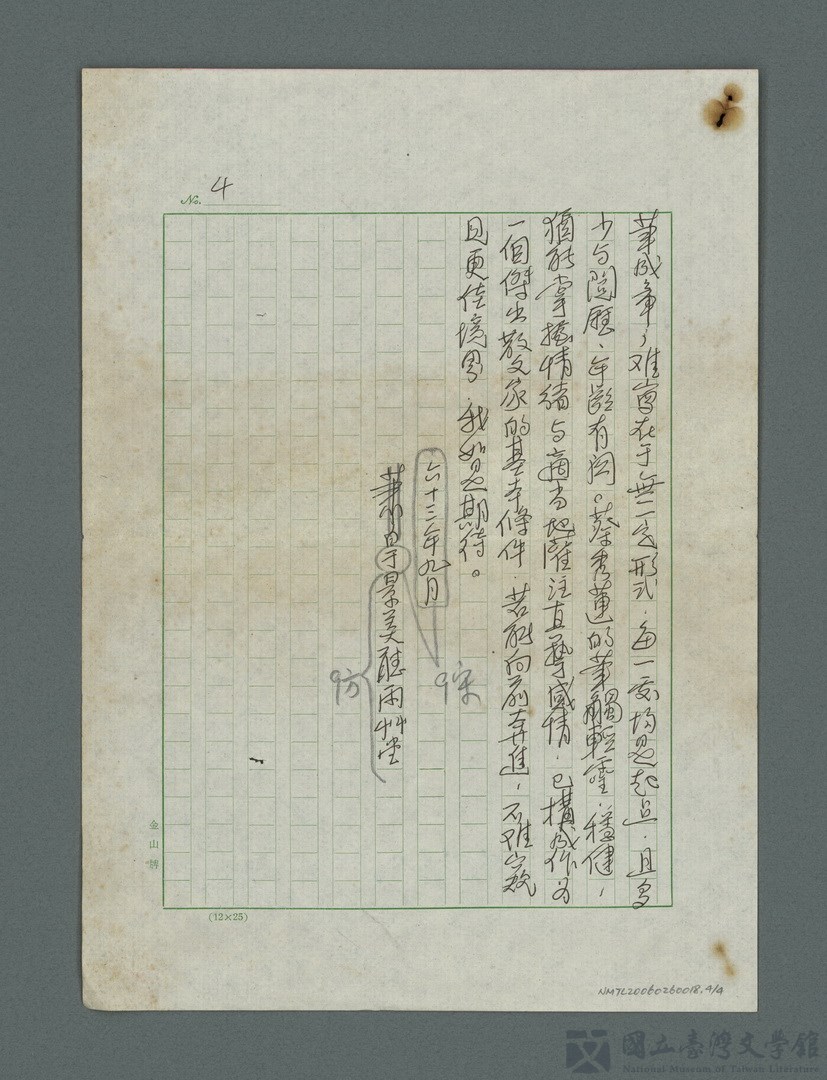 No. 4
筆成章，难當在于無一定形式，每一處均是起点，且多
少与閱歷、年齡有関。蔡秀蓮的筆觸輕靈，穩健，
猶能掌握情緒与適当地灌注真摯感情，已構成作为
一個傑出散文家的基本條件，若能向前奔進，不难
且更佳境界，我如是期待。
六十三年九月
于景美聽雨艸堂
9宋
9方
金山牌
(12×25)
NMTL20060260018.4/4
國立臺灣文學館
National Museum of Taiwan Literature